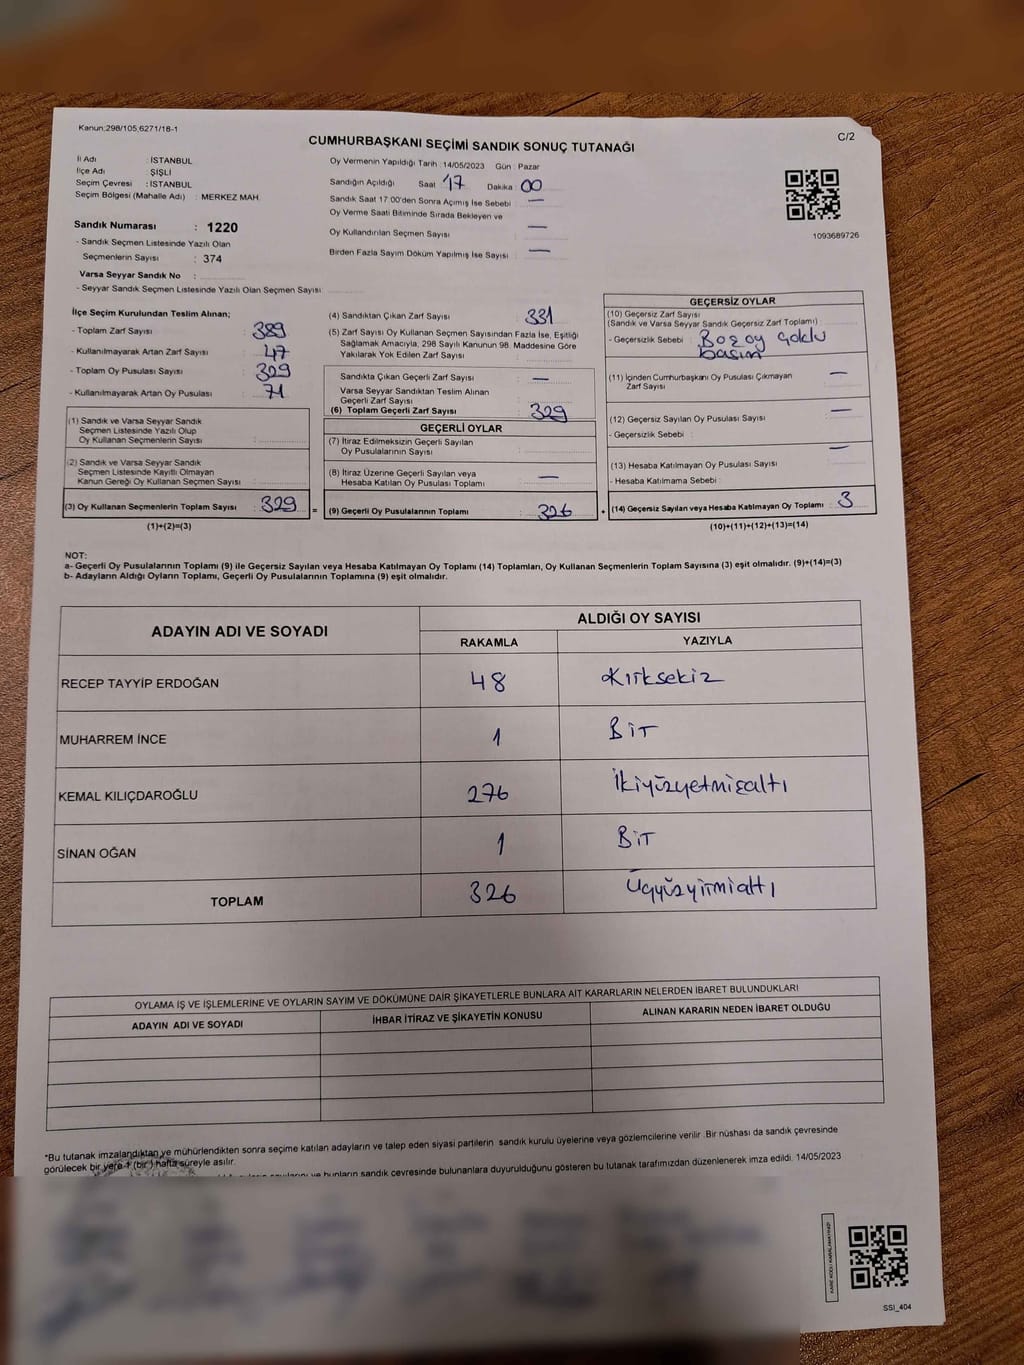 Kanun:298/105,6271/18-1
C/2
CUMHURBAŞKANI SEÇİMİ SANDIK SONUÇ TUTANAĞI
İl Adı : İSTANBUL
İlçe Adı : ŞİŞLİ
Seçim Çevresi : İSTANBUL
Seçim Bölgesi (Mahalle Adı) : MERKEZ MAH.
Sandık Numarası : 1220
- Sandık Seçmen Listesinde Yazılı Olan
Seçmenlerin Sayısı : 374
Varsa Seyyar Sandık No :
- Seyyar Sandık Seçmen Listesinde Yazılı Olan Seçmen Sayısı:
Oy Vermenin Yapıldığı Tarih : 14/05/2023 Gün : Pazar
Sandığın Açıldığı Saat 17 Dakika : 00
Sandık Saat 17:00'den Sonra Açımış İse Sebebi : —
Oy Verme Saati Bitiminde Sırada Bekleyen ve
Oy Kullandırılan Seçmen Sayısı : —
Birden Fazla Sayım Döküm Yapılmış İse Sayısı : —
1093689726
İlçe Seçim Kurulundan Teslim Alınan;
- Toplam Zarf Sayısı : 389
- Kullanılmayarak Artan Zarf Sayısı : 47
- Toplam Oy Pusulası Sayısı : 329
- Kullanılmayarak Artan Oy Pusulası : 71
(1) Sandık ve Varsa Seyyar Sandık
Seçmen Listesinde Yazılı Olup
Oy Kullanan Seçmenlerin Sayısı :
(2) Sandık ve Varsa Seyyar Sandık
Seçmen Listesinde Kayıtlı Olmayan
Kanun Gereği Oy Kullanan Seçmen Sayısı :
(3) Oy Kullanan Seçmenlerin Toplam Sayısı : 329 =
(1)+(2)=(3)
(4) Sandıktan Çıkan Zarf Sayısı : 331
(5) Zarf Sayısı Oy Kullanan Seçmen Sayısından Fazla İse, Eşitliği
Sağlamak Amacıyla, 298 Sayılı Kanunun 98. Maddesine Göre
Yakılarak Yok Edilen Zarf Sayısı :
Sandıkta Çıkan Geçerli Zarf Sayısı : —
Varsa Seyyar Sandıktan Teslim Alınan
Geçerli Zarf Sayısı :
(6) Toplam Geçerli Zarf Sayısı : 329
GEÇERLİ OYLAR
(7) İtiraz Edilmeksizin Geçerli Sayılan
Oy Pusulalarının Sayısı :
(8) İtiraz Üzerine Geçerli Sayılan veya
Hesaba Katılan Oy Pusulası Toplamı : —
(9) Geçerli Oy Pusulalarının Toplamı : 326 +
GEÇERSİZ OYLAR
(10) Geçersiz Zarf Sayısı
(Sandık ve Varsa Seyyar Sandık Geçersiz Zarf Toplamı) :
- Geçersizlik Sebebi : Boş oy çoklu
basım
(11) İçinden Cumhurbaşkanı Oy Pusulası Çıkmayan
Zarf Sayısı : —
(12) Geçersiz Sayılan Oy Pusulası Sayısı : —
- Geçersizlik Sebebi :
(13) Hesaba Katılmayan Oy Pusulası Sayısı : —
- Hesaba Katılmama Sebebi :
(14) Geçersiz Sayılan veya Hesaba Katılmayan Oy Toplamı : 3
(10)+(11)+(12)+(13)=(14)
NOT:
a- Geçerli Oy Pusulalarının Toplamı (9) ile Geçersiz Sayılan veya Hesaba Katılmayan Oy Toplamı (14) Toplamları, Oy Kullanan Seçmenlerin Toplam Sayısına (3) eşit olmalıdır. (9)+(14)=(3)
b- Adayların Aldığı Oyların Toplamı, Geçerli Oy Pusulalarının Toplamına (9) eşit olmalıdır.
ADAYIN ADI VE SOYADI
ALDIĞI OY SAYISI
RAKAMLA YAZIYLA
RECEP TAYYİP ERDOĞAN 48 Kırksekiz
MUHARREM İNCE 1 Bir
KEMAL KILIÇDAROĞLU 276 İkiyüzyetmişaltı
SİNAN OĞAN 1 Bir
TOPLAM 326 Üçyüzyirmialtı
OYLAMA İŞ VE İŞLEMLERİNE VE OYLARIN SAYIM VE DÖKÜMÜNE DAİR ŞİKAYETLERLE BUNLARA AİT KARARLARIN NELERDEN İBARET BULUNDUKLARI
ADAYIN ADI VE SOYADI İHBAR İTİRAZ VE ŞİKAYETİN KONUSU ALINAN KARARIN NEDEN İBARET OLDUĞU
*Bu tutanak imzalandıktan ve mühürlendikten sonra seçime katılan adayların ve talep eden siyasi partilerin sandık kurulu üyelerine veya gözlemcilerine verilir. Bir nüshası da sandık çevresinde
görülecek bir yere 1 (bir) hafta süreyle asılır.
ve bunların sandık çevresinde bulunanlara duyurulduğunu gösteren bu tutanak tarafımızdan düzenlenerek imza edildi. 14/05/2023
KARE KODU KARALAMAYINIZ!
SSI_404